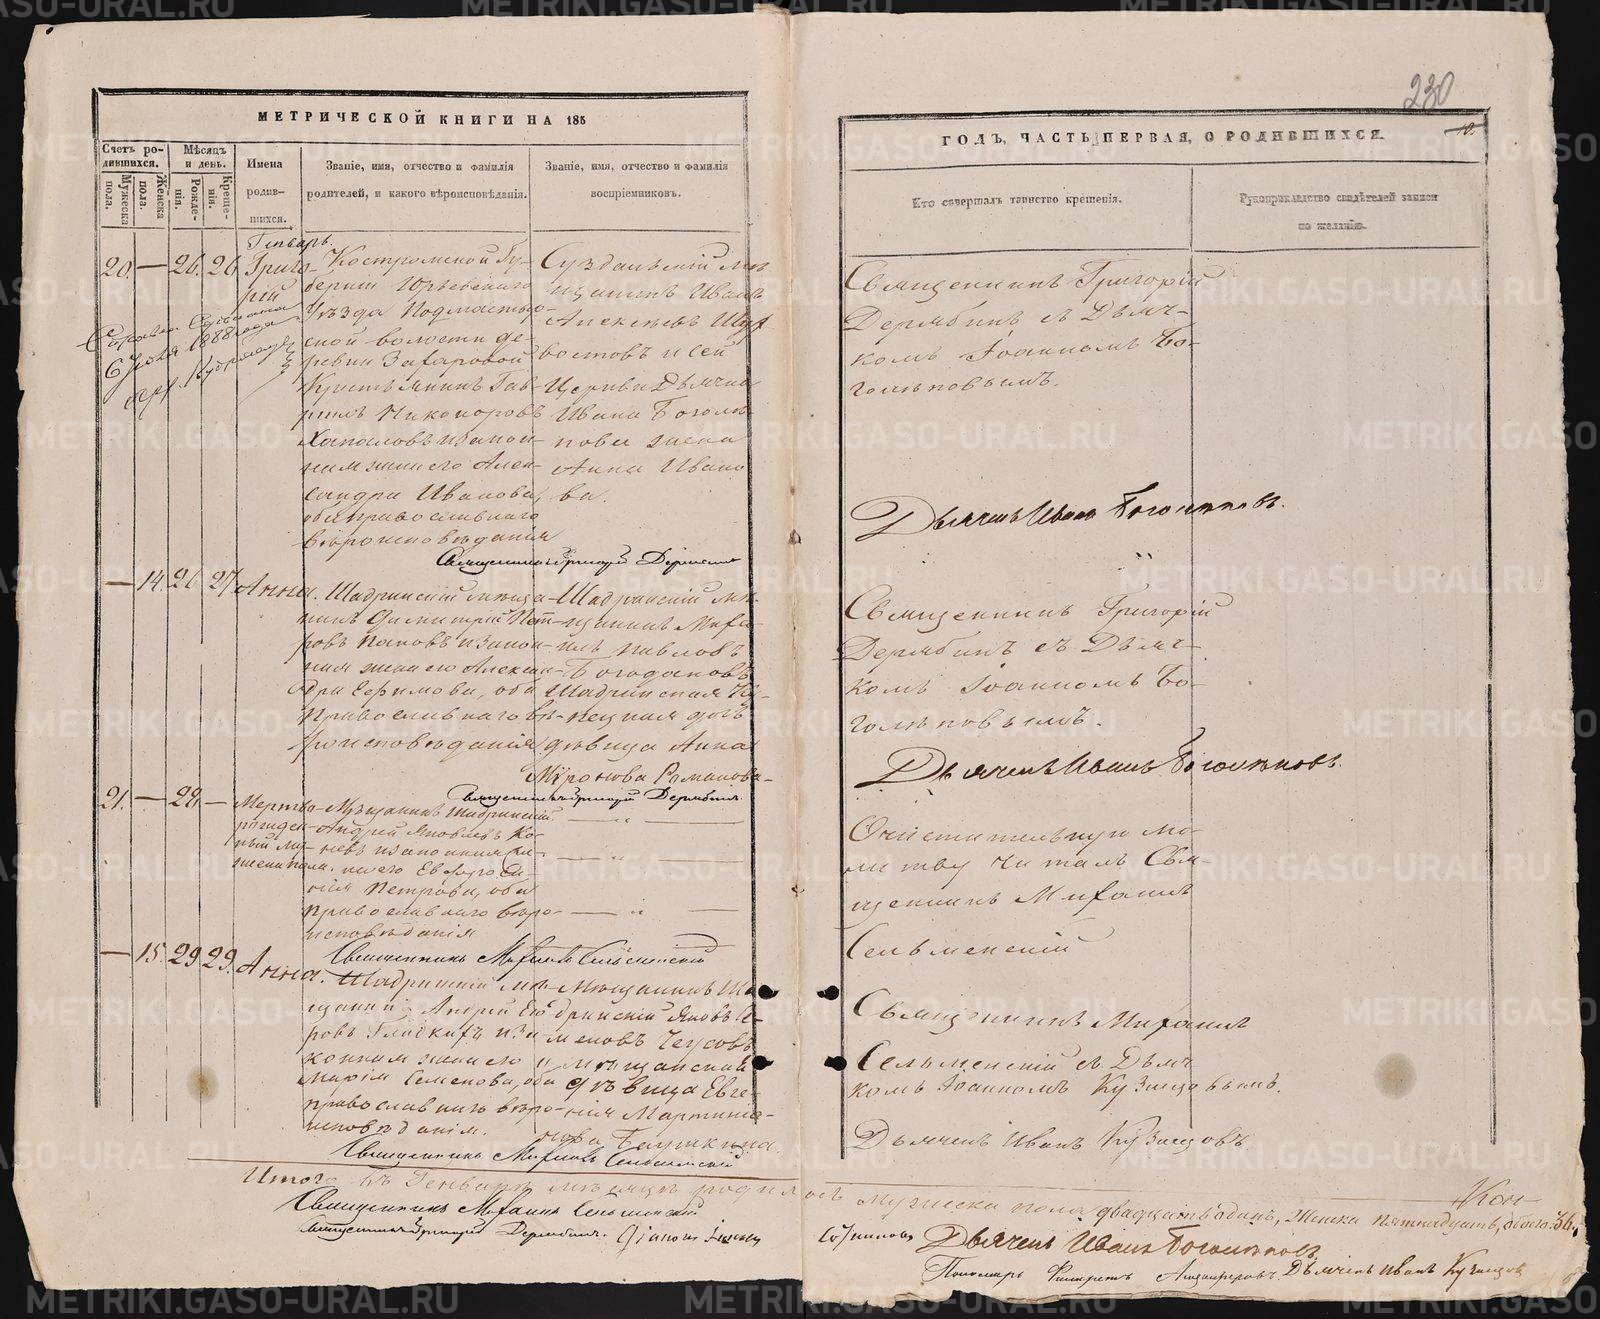 230
МЕТРИЧЕСКОЙ КНИГИ НА 185
ГОДЪ, ЧАСТЬ ПЕРВАЯ, О РОДИВШИХСЯ.
10.
Счетъ ро-
дившихся.
Мужеска
пола.
Женска
пола.
Мѣсяцъ
и день.
Рожде-
нія.
Креще-
нія.
Имена
родив-
шихся.
Званіе, имя, отчество и фамилія
родителей, и какого вѣроисповѣданія.
Званіе, имя, отчество и фамилія
воспріемниковъ.
Кто совершалъ таинство крещенія.
Рукоприкладство свидѣтелей записи
по желанію.
Генварь.
20. — 26. 26
Григо-
рій
6 Іюля 1888 года
Костромской Гу-
берніи Юрьевскаго
уѣзда
ской волости де-
ревни Захаровой
Крестьянинъ Гав-
рилъ Никоноровъ
и закон-
ная жена его Алек-
сандра Иванова,
оба православнаго
вѣроисповѣданія
Суздальскій мѣ-
щанинъ Иванъ
Алексѣевъ
и сей
Церкви Дьячка
Ивана Боголѣ-
пова жена
Анна Ивано-
ва.
Священникъ Григорій
Дерябинъ съ Дьяч-
комъ Іоанномъ Бо-
голѣповымъ.
Дьячекъ Иванъ Боголѣповъ.
Священникъ Григорій Дерябинъ
— 14. 26 27 Анна.
Шадринскій мѣща-
нинъ Димитрій Пет-
ровъ Пановъ и закон-
ная жена его Алексан-
дра Ефимова, оба
Православнаго вѣ-
роисповѣданія
Шадринскій мѣ-
щанинъ Миха-
илъ Павловъ
Богодановъ
Шадринская Ку-
печеская дочь
дѣвица Анна
Миронова Романова.
Священникъ Григорій
Дерябинъ съ Дьяч-
комъ Іоанномъ Бо-
голѣповымъ.
Дьячекъ Иванъ Боголѣповъ.
Священникъ Григорій Дерябинъ.
21. — 28. —
Мертво-
рожден-
ный
пола.
Мѣщанинъ Шадринскій
Андрей Яковлевъ Ко-
невъ и законная же-
на его Евфроси-
нія Петрова, оба
православнаго вѣро-
исповѣданія
Очистительную мо-
литву читалъ Свя-
щенникъ Михаилъ
Сельменскій
Священникъ Михаилъ Сельменскій
— 15. 29 29. Анна.
Шадринскій мѣ-
щанинъ Андрей Ѳедо-
ровъ Гладкихъ и за-
конная жена его
Марія Семенова, оба
православнаго вѣро-
исповѣданія.
Мѣщанинъ Ша-
дринскій Яковъ
меновъ Чеусовъ
и мѣщанская
дѣвица Евге-
нія Мартиніа-
нова Батуркина.
Священникъ Михаилъ
Сельменскій съ Дьяч-
комъ Іоанномъ Кузнецовымъ.
Дьячекъ Иванъ Кузнецовъ
Священникъ Михаилъ Сельменскій
Итого въ Генварѣ мѣсяцѣ родилось мужеска пола двадцать одинъ, женска пятнадцать, обоего 36.
Священникъ Михаилъ Сельменскій
Священникъ Григорій Дерябинъ.
Дьячекъ Иванъ Боголѣповъ.
Пономарь Дьячекъ Иванъ Кузнецовъ
METRIKI.GASO-URAL.RU